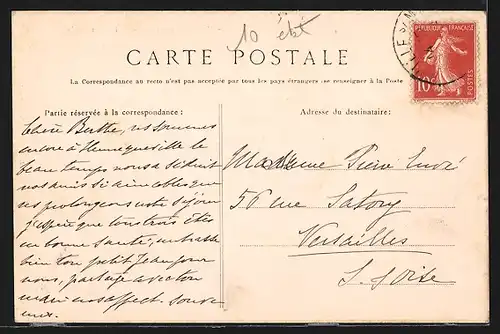 10 été
CARTE POSTALE
La Correspondance au recto n'est pas acceptée par tous les pays étrangers (se renseigner à la Poste
RÉPUBLIQUE FRANÇAISE
10
POSTES
VILLE S/M
Partie réservée à la correspondance :
Adresse du destinataire :
Chère Berthe, ns sommes
encore à Hennequeville le
beau temps nous a séduit
nos amis si aimables que
ns prolongeons notre séjour
j'espère que tous trois êtes
en bonne santé, embrasse
bien ton petit Jean pour
nous, partage avec ton
mari nos affect. souve
nirs.
Madame Pierre
56 rue Satory
Versailles
S. & Oise